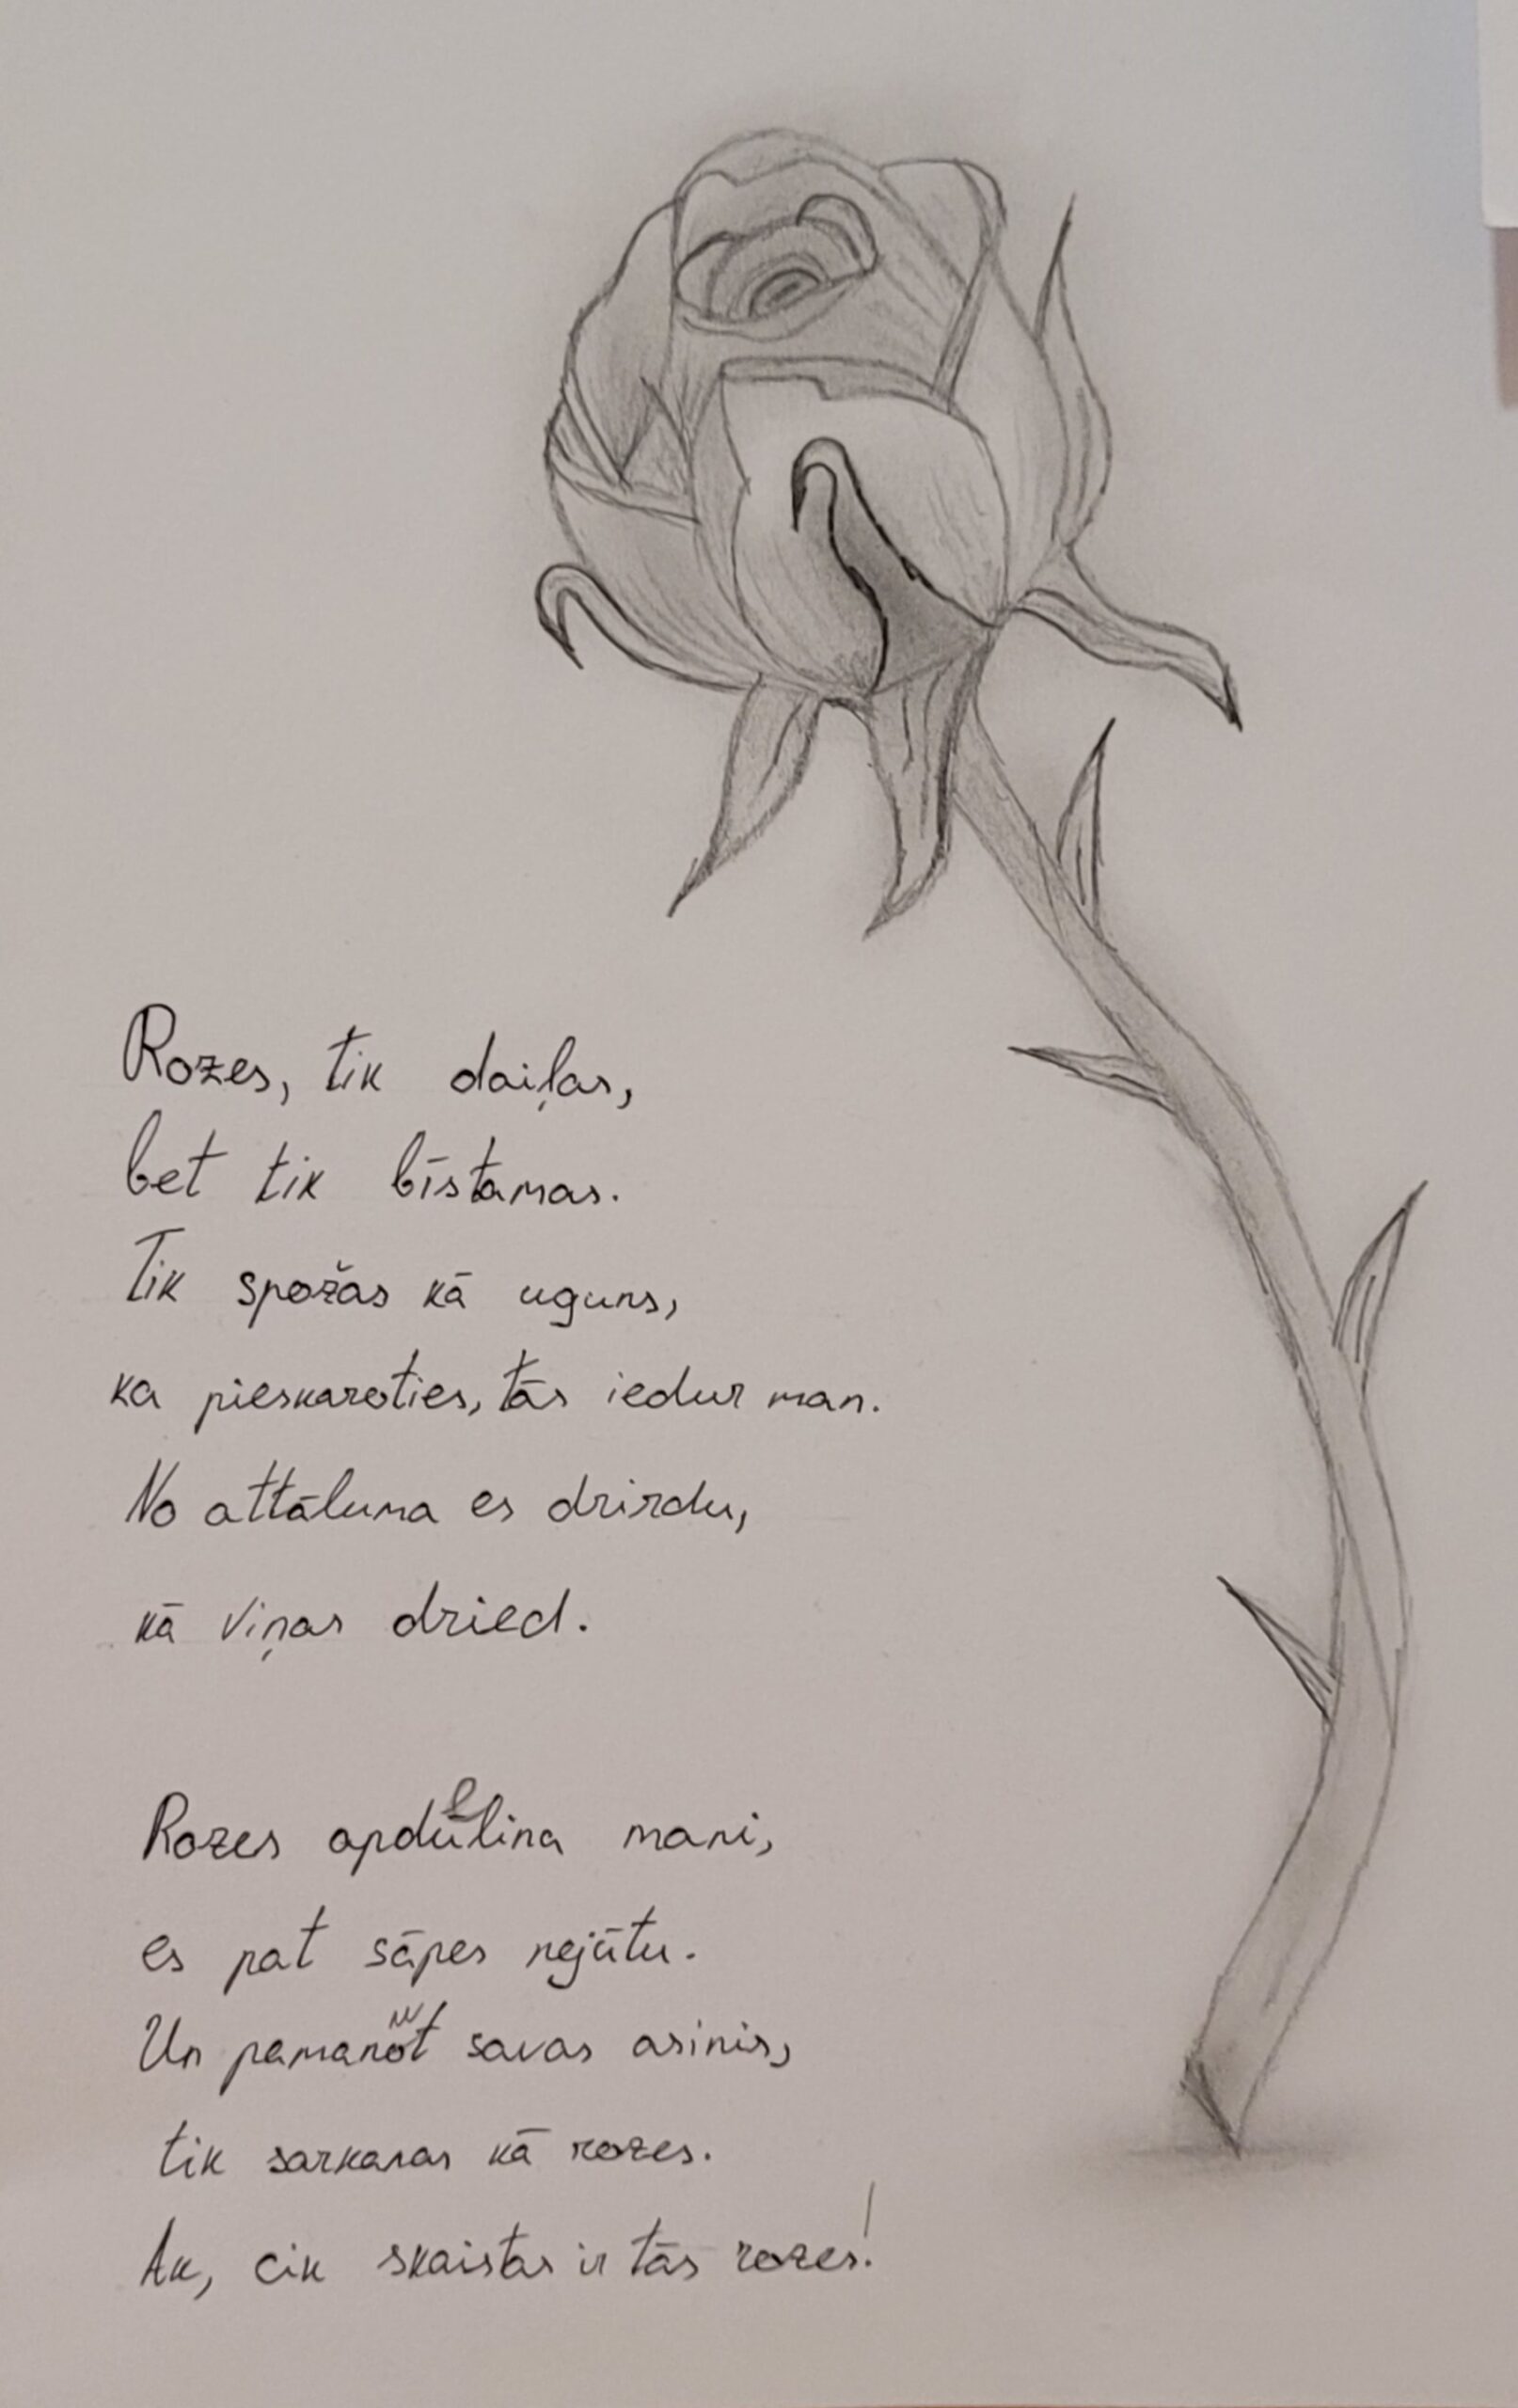 Rozes, tik daiļas,
bet tik bīstamas.
Tik spožas kā uguns,
ka pieskaroties, tās iedur man.
No attāluma es dzirdu,
kā viņas dzied.
Rozes apdullina mani,
es pat sāpes nejūtu.
Un pamanot savas asinis,
tik sarkanas kā rozes.
Ak, cik skaistas ir tās rozes!